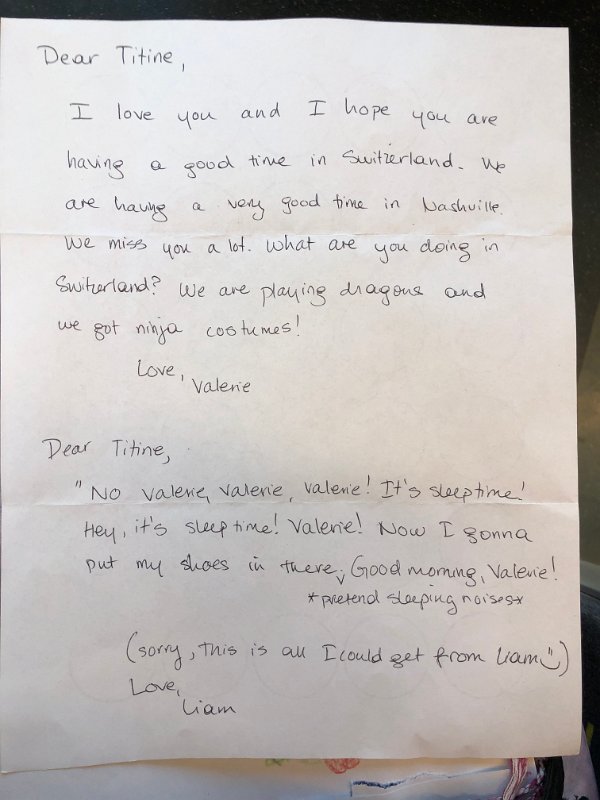 Dear Titine,
I love you and I hope you are
having a good time in Switzerland. We
are having a very good time in Nashville.
We miss you a lot. What are you doing in
Switzerland? We are playing dragons and
we got ninja costumes!
Love,
Valerie
Dear Titine,
"No Valerie, Valerie, Valerie! It's sleeptime!
Hey, it's sleeptime! Valerie! Now I gonna
put my shoes in there. Good morning, Valerie!
*pretend sleeping noises*
(sorry, this is all I could get from Liam :))
Love,
Liam